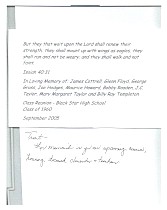 But they that wait upon the Lord shall renew their
strength; they shall mount up with wings as eagles; they
shall run and not be weary; and they shall walk and not
faint.
Isaiah 40:31
In Loving Memory of: James Cottrell, Glenn Floyd, George
Grubb, Joe Hodges, Maurice Howard, Bobby Rosden, J.C.
Taylor, Mary Margaret Taylor and Billy Roy Templeton
Class Reunion - Black Star High School
Class of 1960
September 2005
is an opening